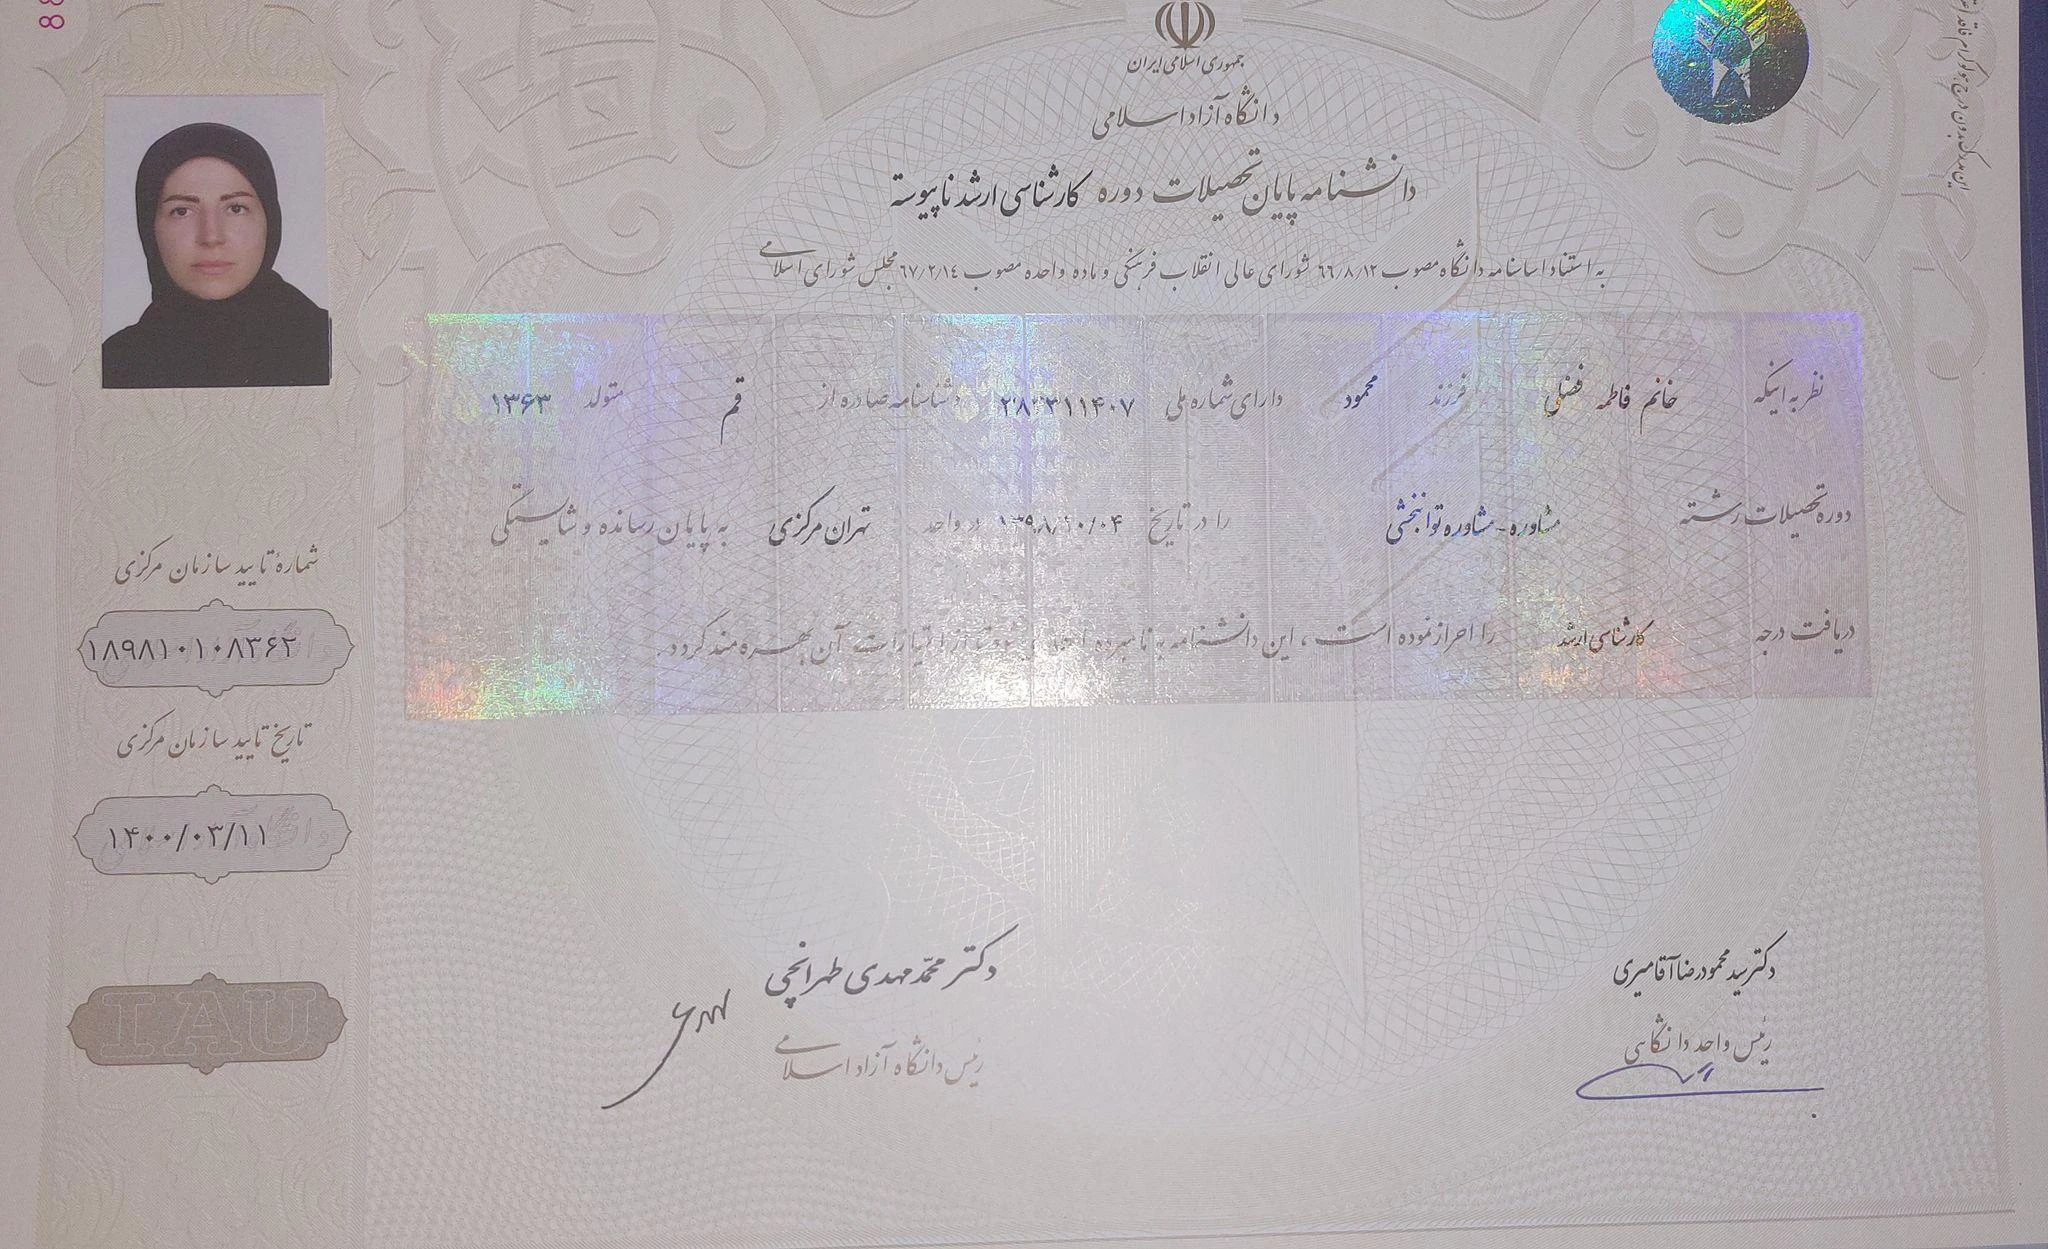 جمهوری اسلامی ایران
دانشگاه آزاد اسلامی
دانشنامه پایان تحصیلات دوره کارشناسی ارشد ناپیوسته
به استناد اساسنامه دانشگاه مصوب ۶۶/۸/۱۲ شورای عالی انقلاب فرهنگی و ماده واحده مصوب ۶۷/۲/۱۴ مجلس شورای اسلامی
نظر به اینکه خانم فاطمه فضلی فرزند محمود دارای شماره ملی شناسنامه صادره از قم متولد ۱۳۶۳
دوره تحصیلات رشته مشاوره - مشاوره توانبخشی را در تاریخ ۱۳۹۸/۱۰/۰۴ در واحد تهران مرکزی به پایان رسانده و شایستگی
دریافت درجه کارشناسی ارشد را احراز نموده است ، این دانشنامه به نامبرده تا از امتیازات آن بهره مند گردد.
شماره تایید سازمان مرکزی
۱۸۹۸۱۰۱۰۸۳۶۲
تاریخ تایید سازمان مرکزی
۱۴۰۰/۰۳/۱۱
IAU
دکتر سید محمودرضا آقامیری
رئیس واحد دانشگاهی
دکتر محمد مهدی طهرانچی
رئیس دانشگاه آزاد اسلامی
این مدرک بدون درج هولوگرام فاقد
88